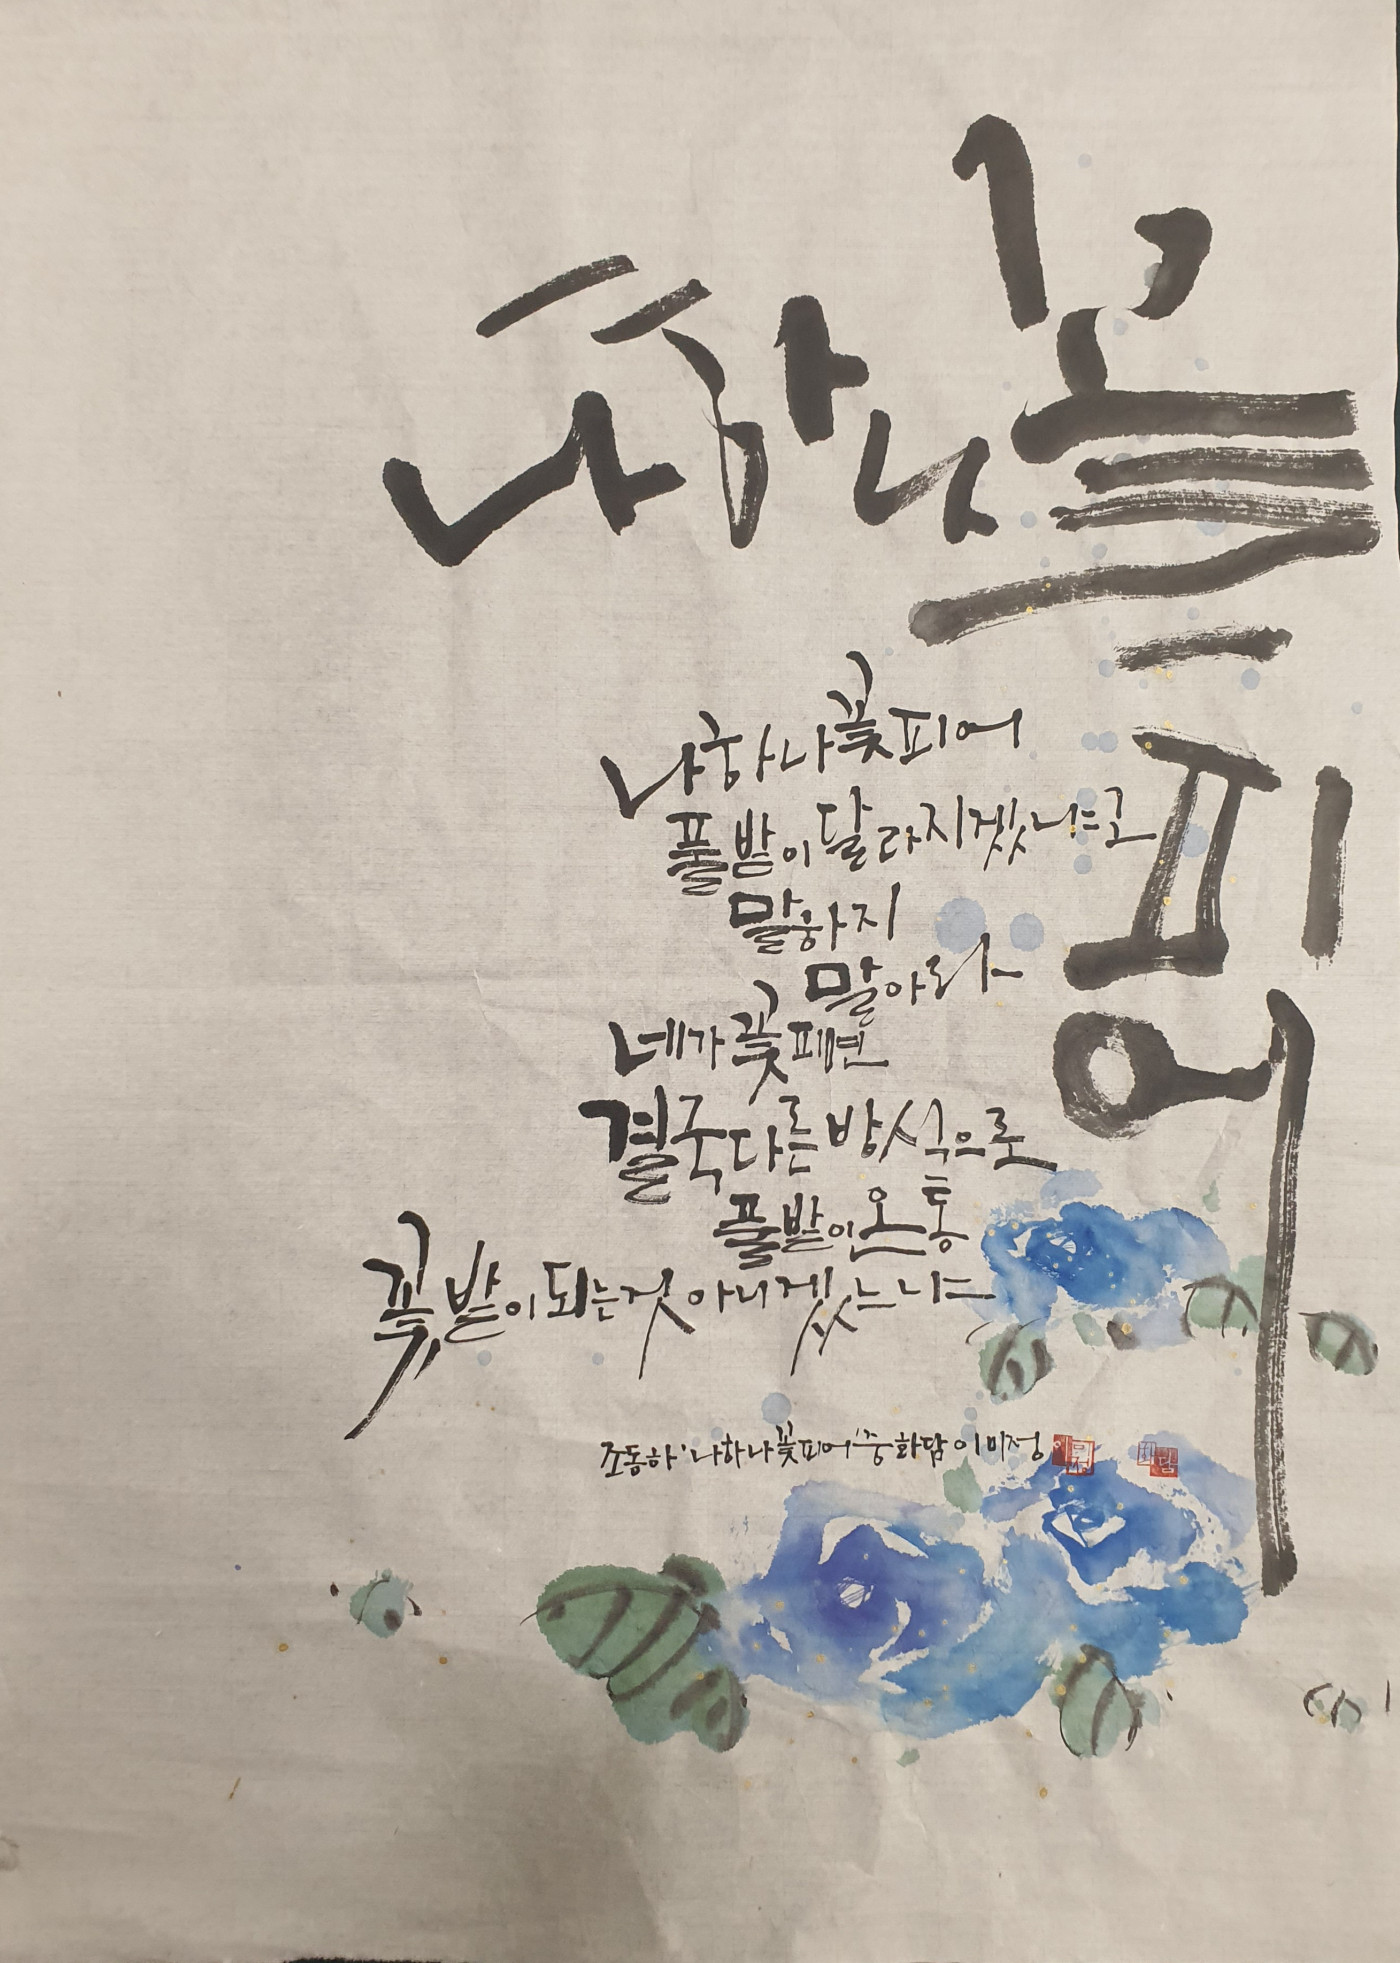 나하나꽃
피어
나하나꽃피어
풀밭이달라지겠냐고
말하지
말아라
네가꽃피면
결국다른방식으로
풀밭이온통
꽃밭이되는것아니겠느냐
조동하 '나하나꽃피어' 중 화담 이미정
이미정
화담